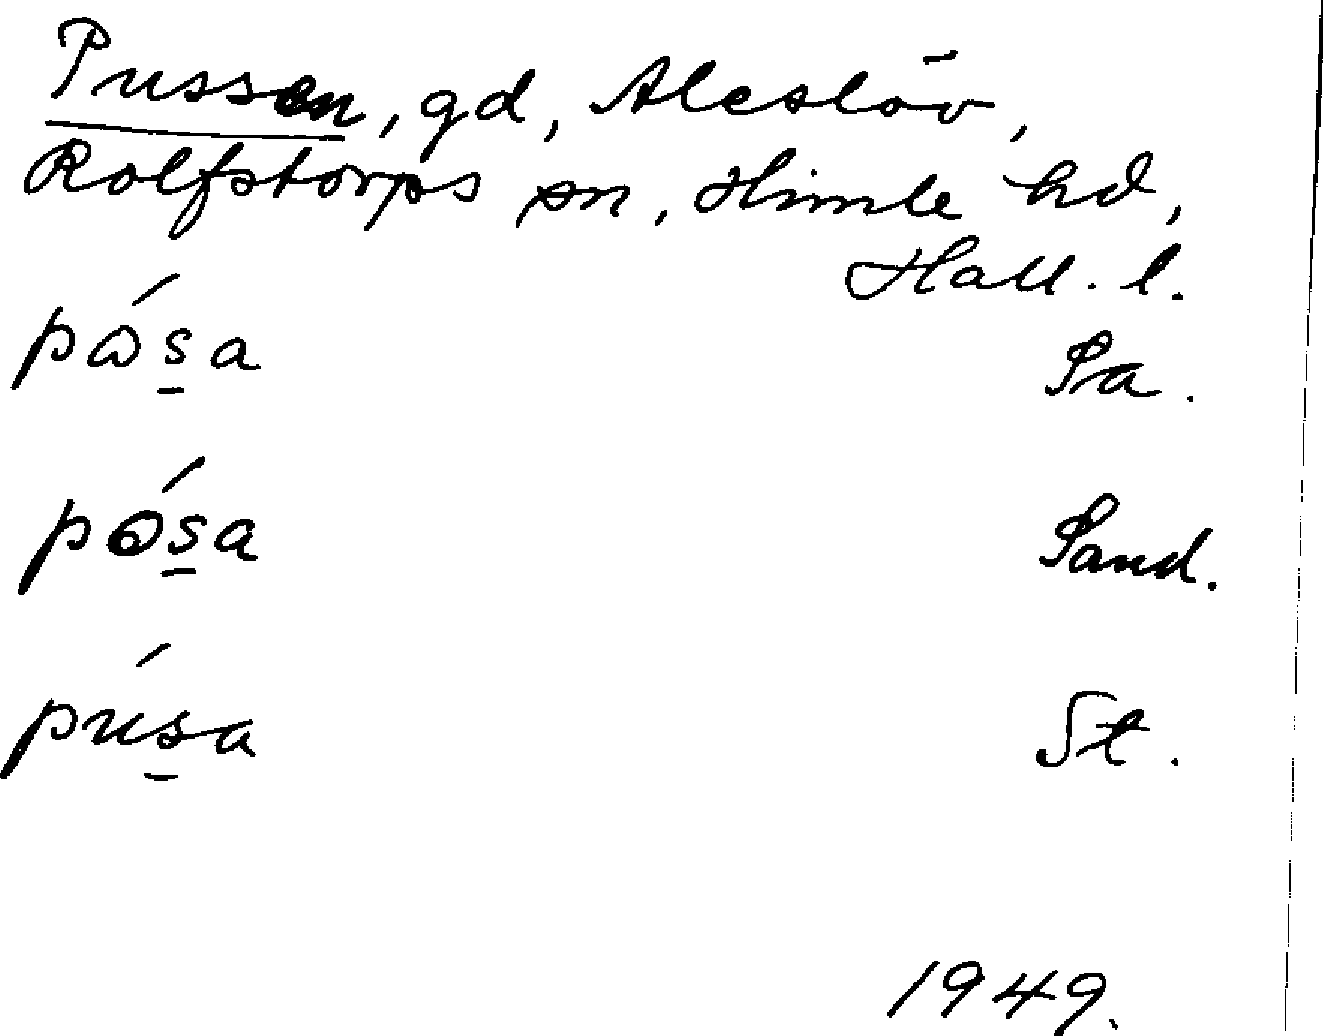 Pussen, gd, Alcslöv,
Rolfstorps sn, Himle hd,
Hall. l.
pɷ́s̱a Sa.
pós̱a Sand.
pús̱a St.
1949.